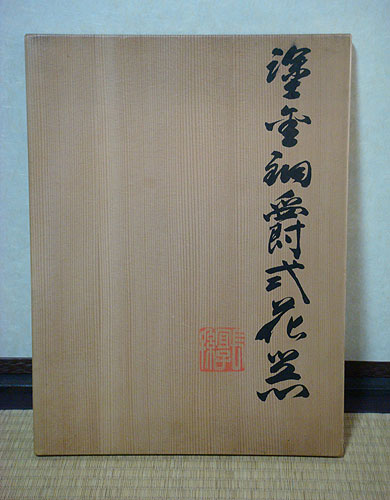 塗金銅爵式花器